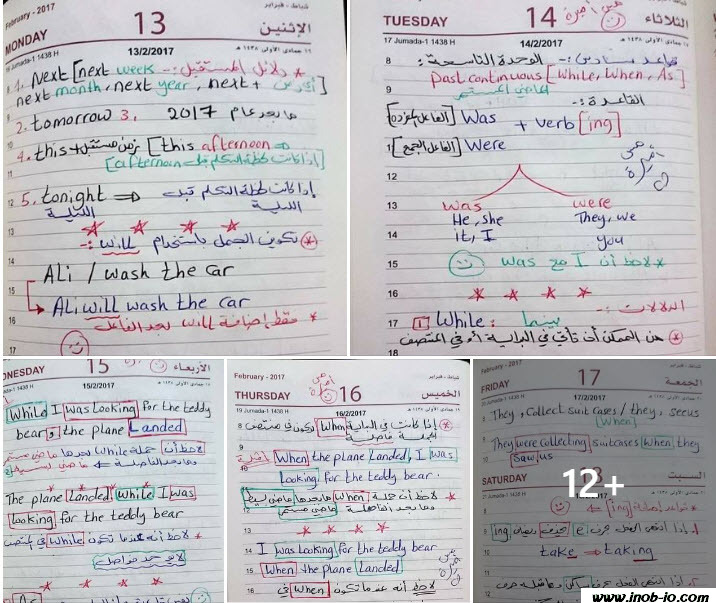 February - 2017
شباط - فبراير
MONDAY
13
الإثنين
19 Jumada-1 1438 H
١٦ جمادى الأولى ١٤٣٨ هـ
13/2/2017
* دلائل المستقبل :-
1. Next [next week
next month, next year, next + ]
2. tomorrow 3. 2017 ما بعد عام
4. this + زمن مستقبل [this afternoon ⇒
[إذا كانت لحظة التكلم قبل afternoon]
5. tonight ⇒ إذا كانت لحظة التكلم قبل
الليلة الليلة
* تكوين الجمل باستخدام will :-
Ali / wash the car
Ali will wash the car
* فقط إضافة will بعد الفاعل
شباط - فبراير
TUESDAY
14
الثلاثاء
17 Jumada-1 1438 H
١٧ جمادى الأولى ١٤٣٨ هـ
14/2/2017
قواعد سادس :- الوحدة التاسعة :
past continuous [While, When, As]
الماضي المستمر
القاعدة :-
Was
+ verb [ing]
[الفاعل الجمع] Were
was were
He, she They, we
it, I you
* لاحظ أن I مع was
الدلالات :-
1 While : بينما
* من الممكن أن تأتي في البداية أو في المنتصف
15
الأربعاء
15/2/2017
While I was looking for the teddy
bear, the plane Landed
لاحظ أن جملة While بعدها ماضي مستمر
وما بعد الفاصلة ماضي بسيط
The plane Landed While I was
looking for the teddy bear
* لاحظ أنه عندما تكون while في المنتصف
لا توجد فواصل
February - 2017
شباط - فبراير
THURSDAY
16
الخميس
19 Jumada-1 1438 H
16/2/2017
* إذا كانت في البداية When وتكون في منتصف
الجملة فاصلة
When the plane Landed, I was
Looking for the teddy bear.
* لاحظ أن جملة When ما بعدها ماضي بسيط
وما بعد الفاصلة ماضي مستمر
I was Looking for the teddy bear
When the plane Landed
لاحظ أنه عندما تكون When في
February - 2017
شباط - فبراير
FRIDAY
17
الجمعة
17/2/2017
They, collect suit cases / they, see us
[When]
They were collecting suitcases When they
Saw us
SATURDAY
السبت
12+
* قواعد إضافة [ing]
إذا انتهى الفعل بحرف e يحذف ويضاف ing
take ⇒ taking
إذا انتهى الفعل بحرف ساكن
www.inob-io.com